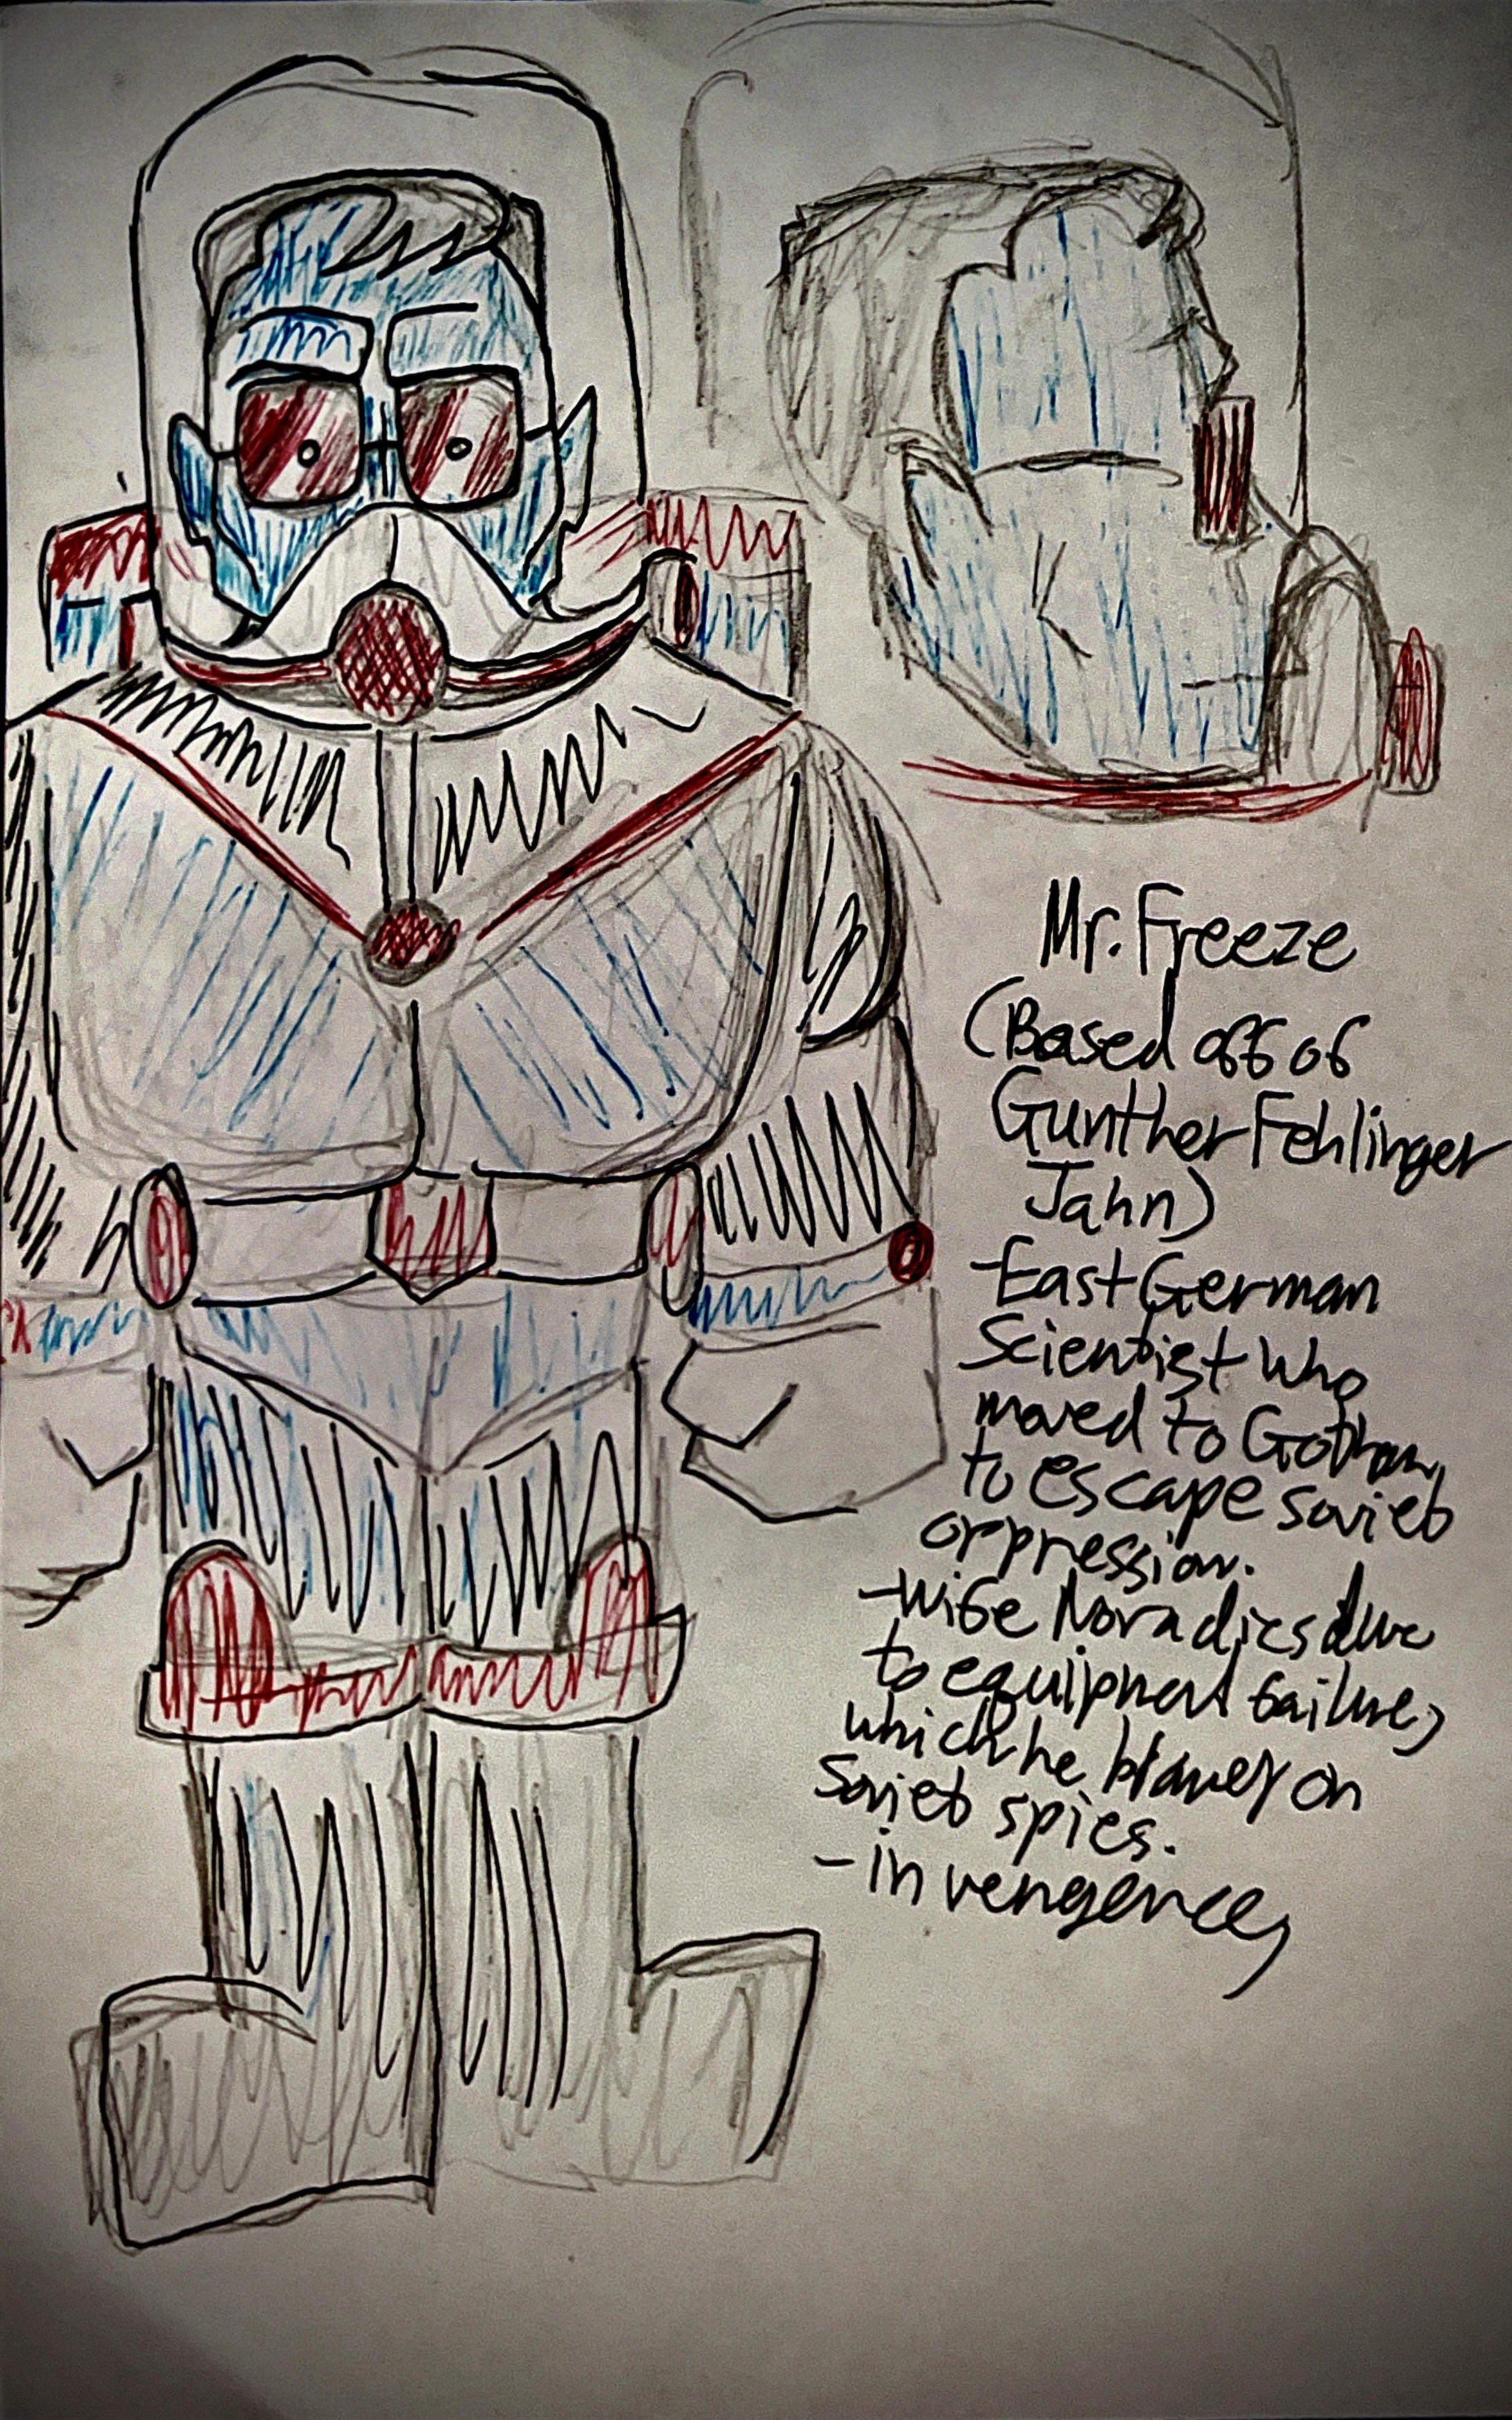 Mr. Freeze
(Based off of
Gunther Fehlinger
Jahn)
-East German
Scientist who
moved to Gotham
to escape soviet
oppression.
-wife Nora dies due
to equipment failure,
which he blames on
Soviet spies.
-in vengence,